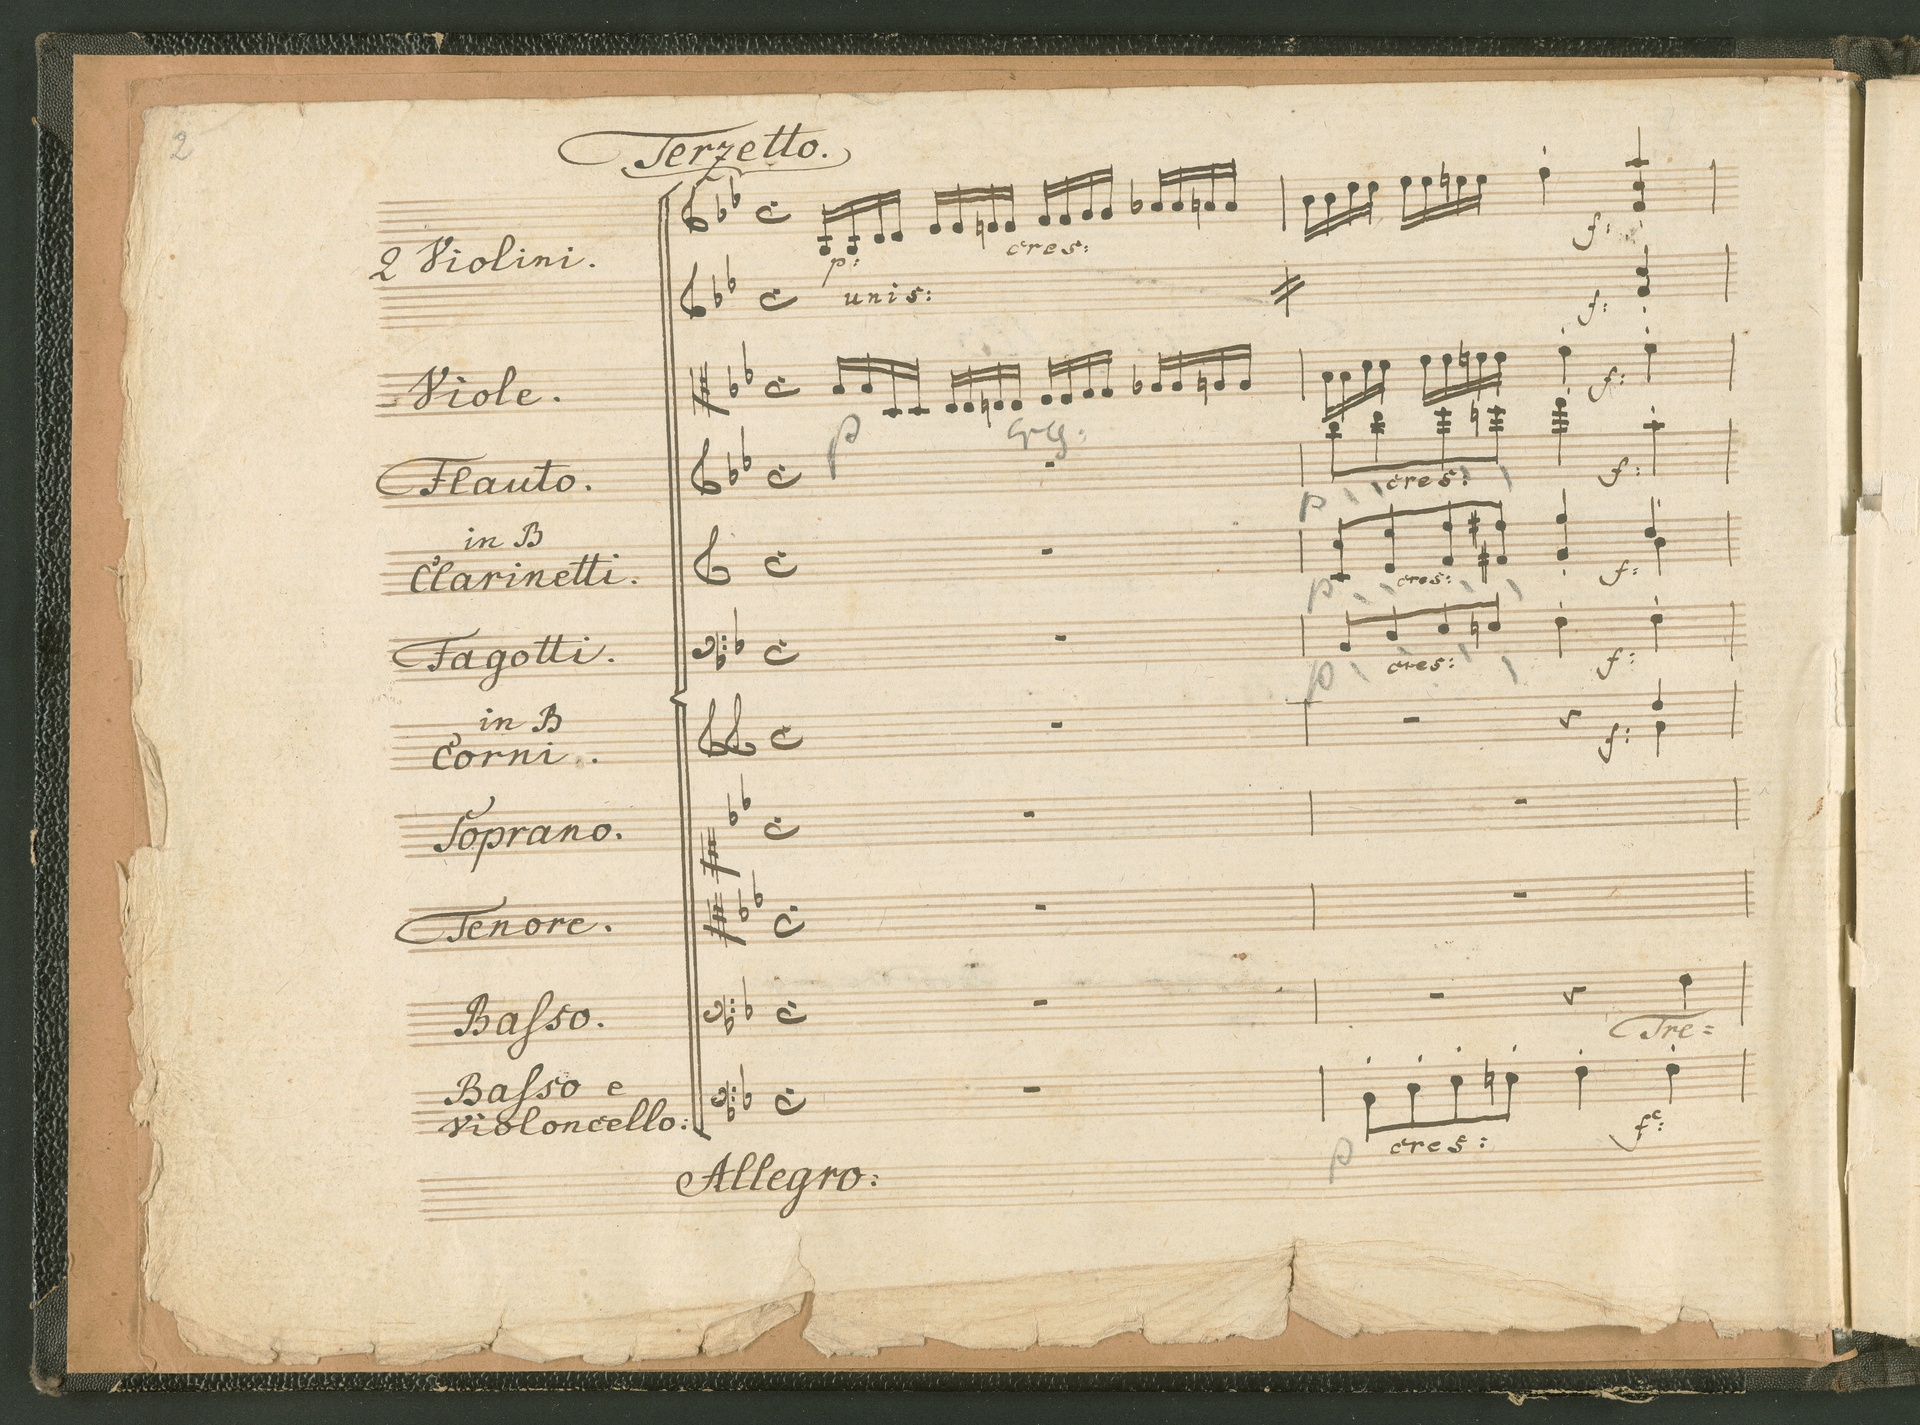 2
Terzetto.
2 Violini.
p:
cres:
f:
unis:
f:
Viole.
p
f:
Flauto.
p
cres:
f:
in B
Clarinetti.
p
cres:
f:
Fagotti.
p
cres:
f:
in B
Corni.
f:
Soprano.
Tenore.
Baſso.
Tre=
Baſso e
Violoncello:
p
cres:
Allegro: